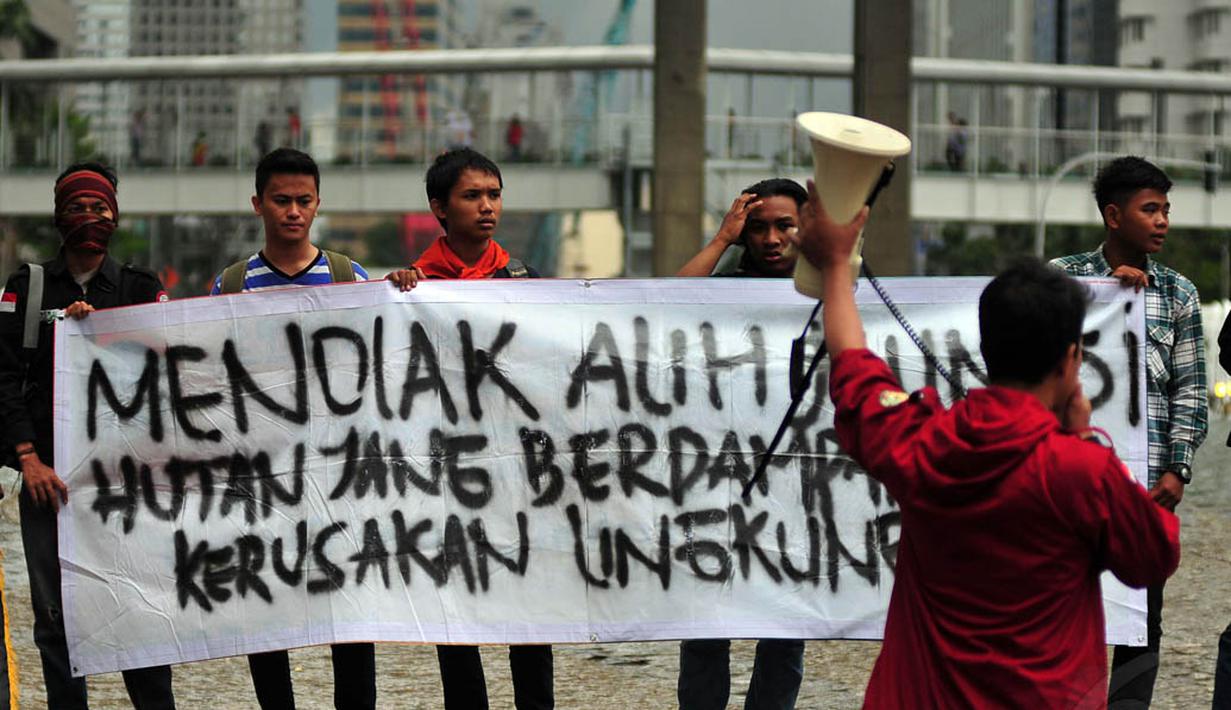 MENOLAK ALIH
HUTAN YANG BERDAMPA
KERUSAKAN LINGKUNG